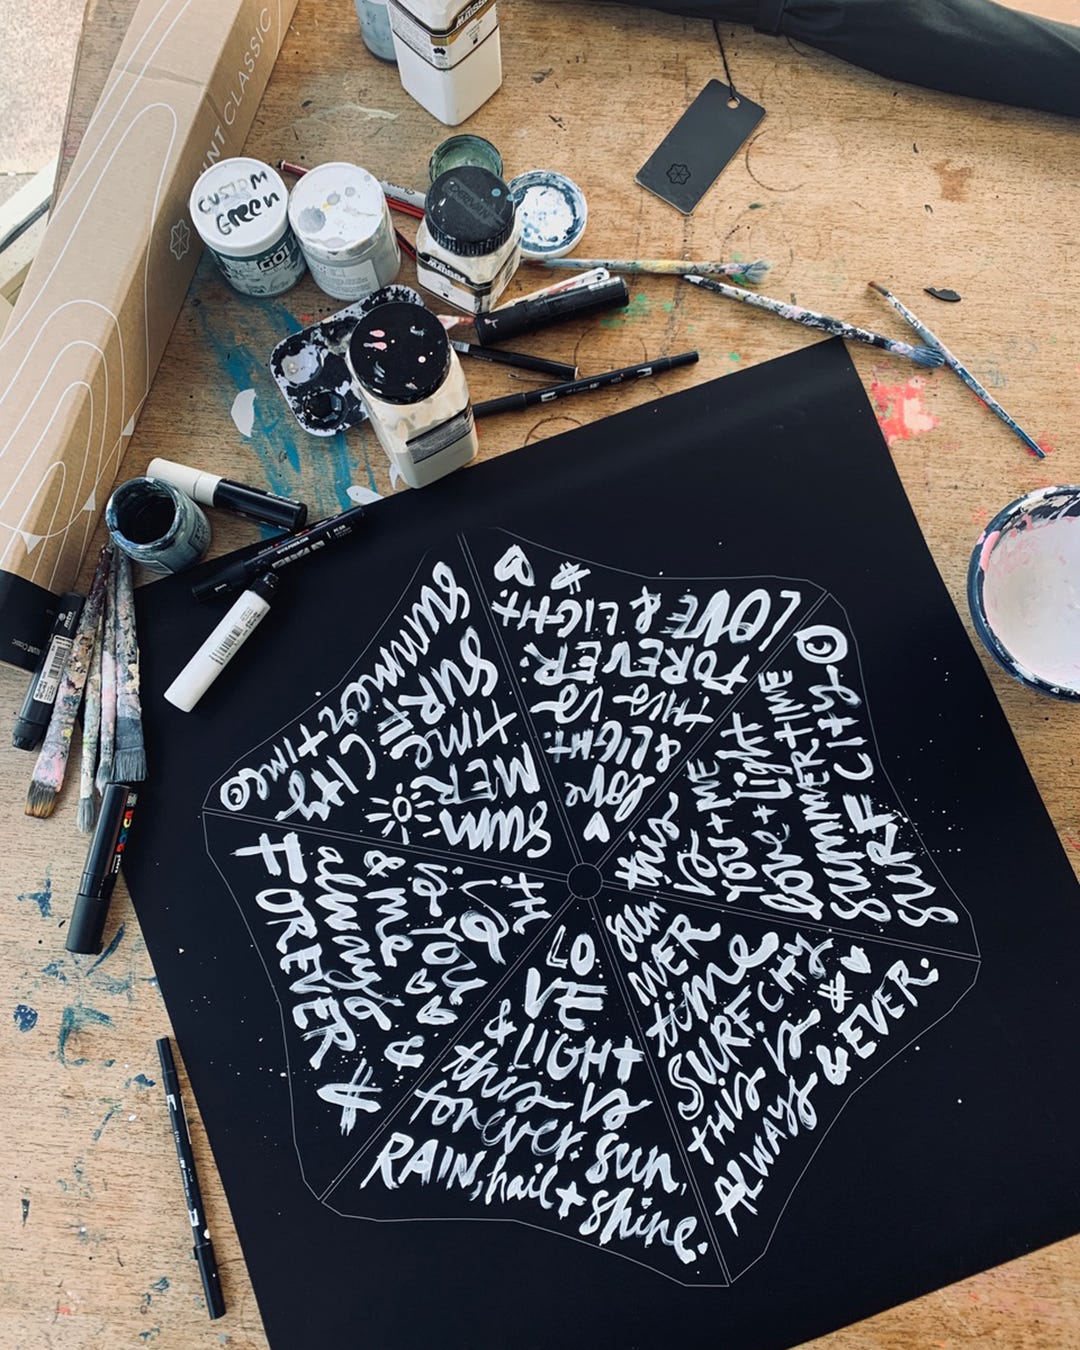 BLUNT CLASSIC
CUSTOM
GREEN
MATISSE
MATISSE
POSCA
LOVE
& LIGHT
this is
forever. Sun,
RAIN, hail + shine.
Sum
MER
time
SURF CITY
this is #
ALWAYS & EVER.
this
is
YOU + ME
Love + Light
SUMMERTIME
SURF CITY ©
LOVE & LIGHT. #
FOREVER.
this is
& LIGHT.
love
SUMMERTIME ©
SURF CITY
TIME
MER
SUM
this
is YOU
& me
always &
FOREVER #